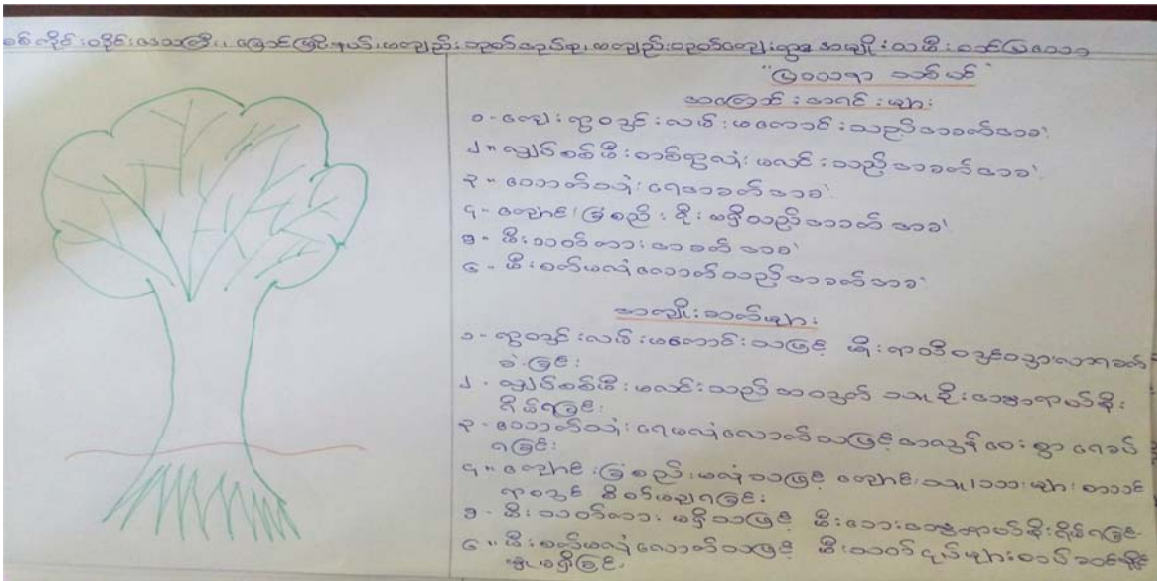 စစ်ကိုင်းတိုင်းဒေသကြီး၊ မြောင်မြို့နယ်၊ မကျည်း အုပ်စု၊ မကျည်း ကျေးရွာ အမျိုးသမီး
"ပြဿနာ သစ်ပင်"
အကြောင်းအရင်းများ
၁- ကျေးရွာတွင်းလမ်းမကောင်းသည့်အခက်အခဲ
၂။ လျှပ်စစ်မီးတစ်ရွာလုံးမလင်းသည့်အခက်အခဲ
၃။ သောက်သုံးရေအခက်အခဲ
၄- ကျောင်းခြံစည်းရိုးမရှိသည့်အခက်အခဲ
၅- မီးသတ်ကားအခက်အခဲ
၆- မီးစက်မလုံလောက်သည့်အခက်အခဲ
အကျိုးဆက်များ
၁- ရွာတွင်းလမ်းမကောင်းသဖြင့် မိုးရာသီတွင်သွားလာရခက်
ခဲခြင်း
၂- လျှပ်စစ်မီးမလင်းသည့်အတွက် သူခိုးအန္တရာယ်စိုး
ရိမ်ရခြင်း
၃- သောက်သုံးရေမလုံလောက်သဖြင့်အလွန်ဝေးစွာရေခပ်
ရခြင်း
၄။ ကျောင်းခြံစည်းမလုံသဖြင့် ကျောင်းသူ/သားများ စာသင်
ရာတွင် စိတ်မချရခြင်း
၅- မီးသတ်ကားမရှိသဖြင့် မီးဘေးအန္တရာယ်စိုးရိမ်ရခြင်း
၆။ မီးစက်မလုံလောက်သဖြင့် မီးသတ်
မှုမရှိခြင်း